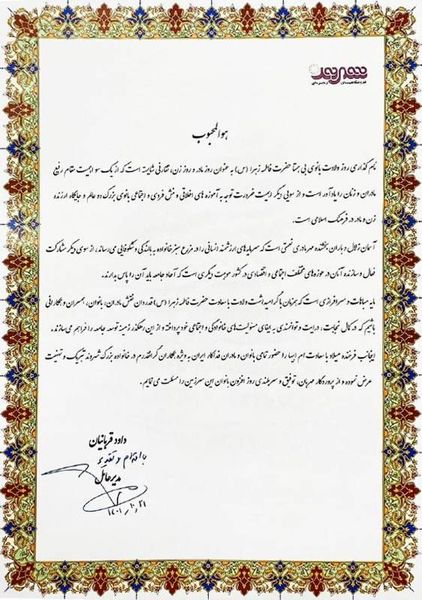 شهروند
هوالمحبوب
نام گذاری روز ولادت بانوی بی همتا حضرت فاطمه زهرا (س) به عنوان روز مادر و روز زن، تقارنی شایسته است که از یک سو اهمیت مقام رفیع
مادران و زنان را یادآور است و از سویی دیگر اهمیت ضرورت توجه به آموزه های اخلاقی و منش فردی و اجتماعی بانوی بزرگ دو عالم و جایگاه ارزنده
زن و مادر در فرهنگ اسلامی است.
آسمان زلال و باران بخشنده مهر مادری نعمتی است که سرمایه‌های ارزشمند انسانی را در مزرع سبز خانواده به بالندگی و شکوفایی می رساند. از سوی دیگر مشارکت
فعال و سازنده آنان در حوزه‌های مختلف اجتماعی و اقتصادی در کشور موهبت دیگری است که آحاد جامعه باید آن را پاس بدارند.
مایه مباهات و سرافرازی است که همزمان با گرامیداشت ولادت با سعادت حضرت فاطمه زهرا (س) قدردان نقش مادران، بانوان، همسران و همکارانی
باشیم که در کمال نجابت، درایت و توانمندی به ایفای مسئولیت‌های خانوادگی و اجتماعی خود پرداخته و از این رهگذر زمینه توسعه جامعه را فراهم می سازند.
اینجانب فرخنده میلاد با سعادت ام ابیها را حضور تمامی بانوان و مادران فداکار ایران به ویژه همکاران گرانقدرم در خانواده بزرگ شهروند تبریک و تهنیت
عرض نموده و از پروردگار مهربان، توفیق و سربلندی روز افزون بانوان این سرزمین را مسئلت می نمایم.
داود قربانیان
با احترام و تقدیم
مدیرعامل